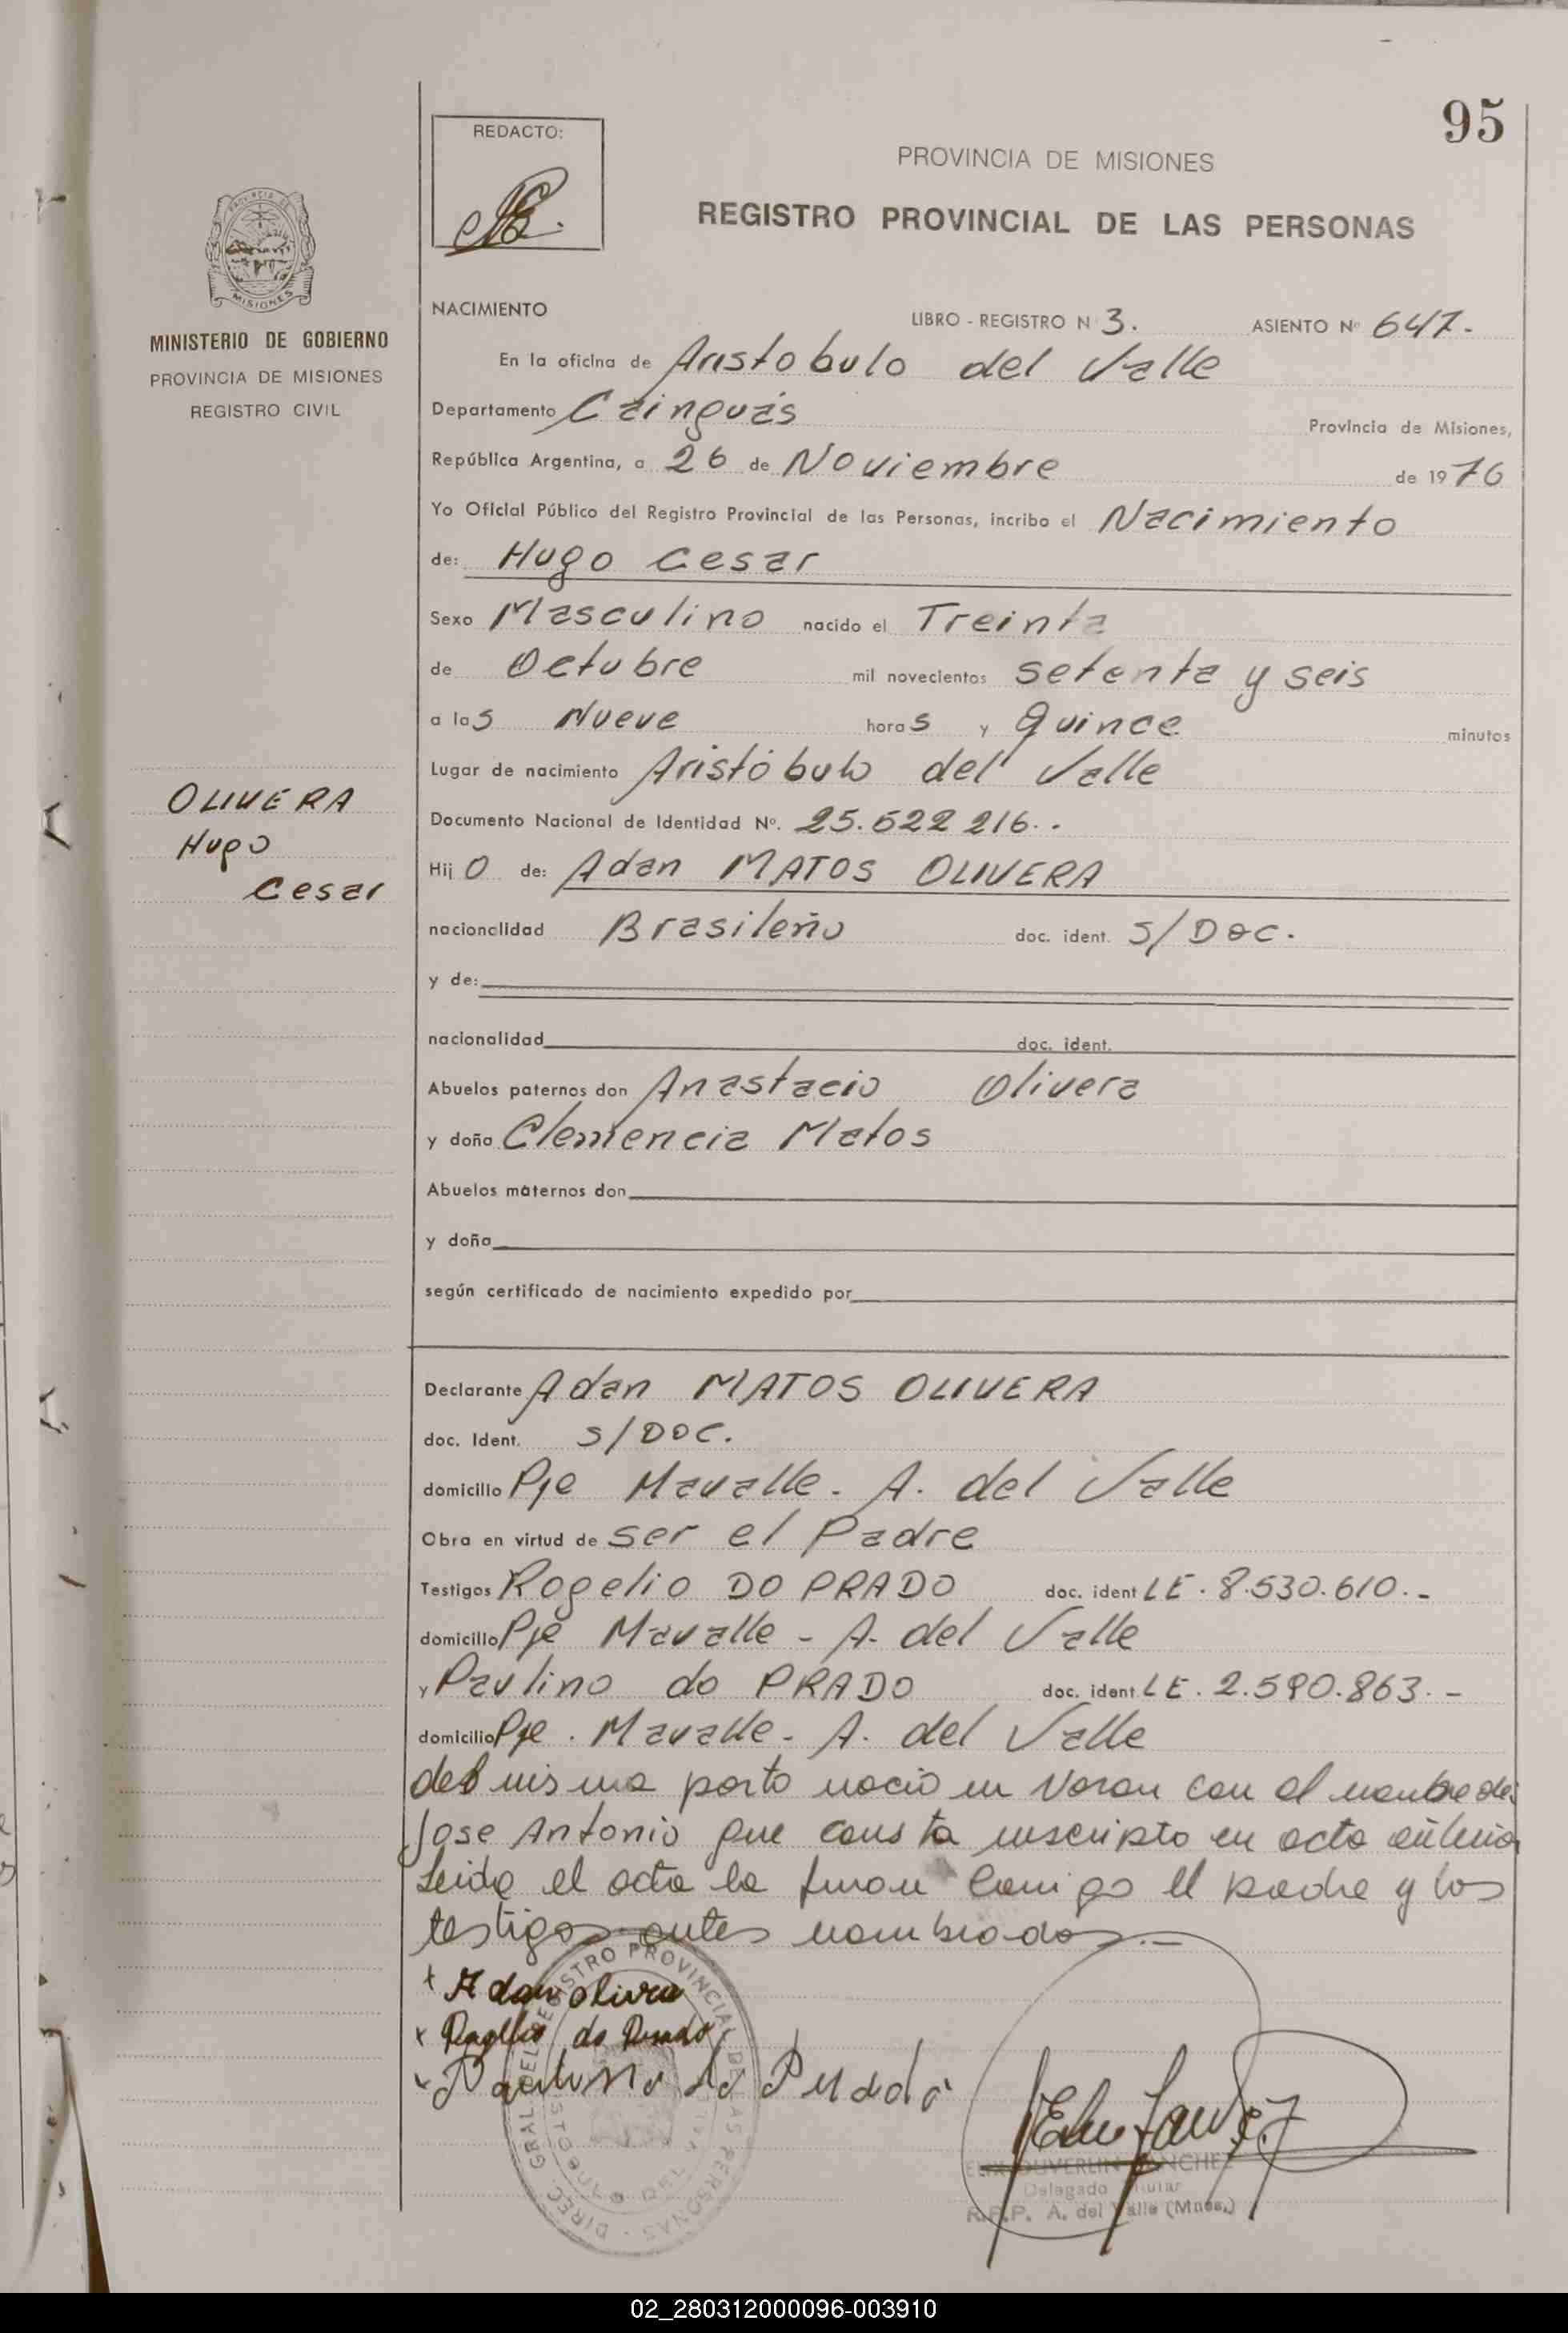 95
REDACTO:
PROVINCIA DE MISIONES
REGISTRO PROVINCIAL DE LAS PERSONAS
MISIONES
MINISTERIO DE GOBIERNO
PROVINCIA DE MISIONES
REGISTRO CIVIL
NACIMIENTO LIBRO - REGISTRO N 3. ASIENTO Nº 647.
En la oficina de Aristobulo del Valle
Departamento Cainguás Provincia de Misiones,
República Argentina, a 26 de Noviembre de 1976
Yo Oficial Público del Registro Provincial de las Personas, incribo el Nacimiento
de: Hugo Cesar
Sexo Masculino nacido el Treinta
de Octubre mil novecientos setenta y seis
a las Nueve horas y Quince minutos
Lugar de nacimiento Aristóbulo del Valle
OLIVERA
Hugo
Cesar
Documento Nacional de Identidad Nº. 25.622 216..
Hijo de: Adan MATOS OLIVERA
nacionalidad Brasileño doc. ident. S/DOC.
y de:
nacionalidad doc. ident.
Abuelos paternos don Anastacio Olivera
y doña Clemencia Matos
Abuelos maternos don
y doña
según certificado de nacimiento expedido por
Declarante Adan MATOS OLIVERA
doc. Ident. S/DOC.
domicilio Pje Mavalle - A. del Valle
Obra en virtud de ser el Padre
Testigos Rogelio DO PRADO doc. ident LE. 8.530.610.-
domicilio Pje Mavalle - A. del Valle
y Paulino do PRADO doc. ident. LE. 2.590.863.-
domicilio Pje. Mavalle - A. del Valle
del misma parto nacio un Varon con el nombre de:
Jose Antonio que consta inscripto en acta
Leida el acta la firman conmigo el padre y los
testigos antes nombrados.-
x Adan olivera
x Rogelio do Prado
x Paulino do Prado
DIREC. GRAL. DEL REGISTRO PROVINCIAL DE LAS PERSONAS
SANCHEZ
Delegado Titular
R.P.P. A. del Valle (Mnes.)
02_280312000096-003910